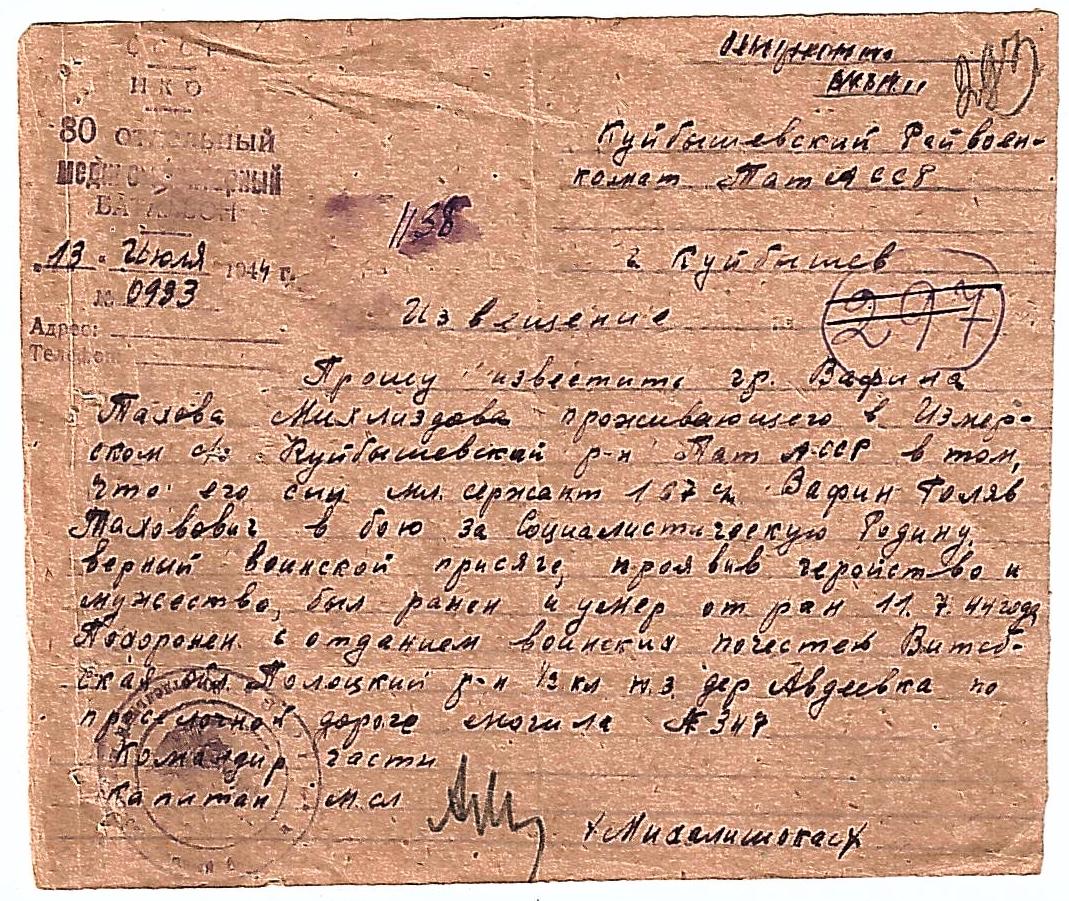 СССР
НКО
80 ОТДЕЛЬНЫЙ
МЕДИКО-САНИТАРНЫЙ
БАТАЛЬОН
"13" Июля 1944 г.
№ 0993
Адрес:
Телефон:
1138
Куйбышевский Райвоен-
комат ТатАССР
г Куйбышев
297
Извещение
Прошу известить гр. Вафина
проживающего в Измер-
ском с/с Куйбышевский р-н ТатАССР в том,
что его сын мл. сержант 167 Вафин Голяв
Таховович в бою за Социалистическую Родину,
верный воинской присяге, проявив геройство и
мужество, был ранен и умер от ран 11.7.44 года
Похоронен с отданием воинских почестей Витеб-
ская обл. Полоцкий р-н 1/2 кл ю.з. дер Авдеевка по
проселочной дороге могила № 347
Командир части
Капитан м.сл